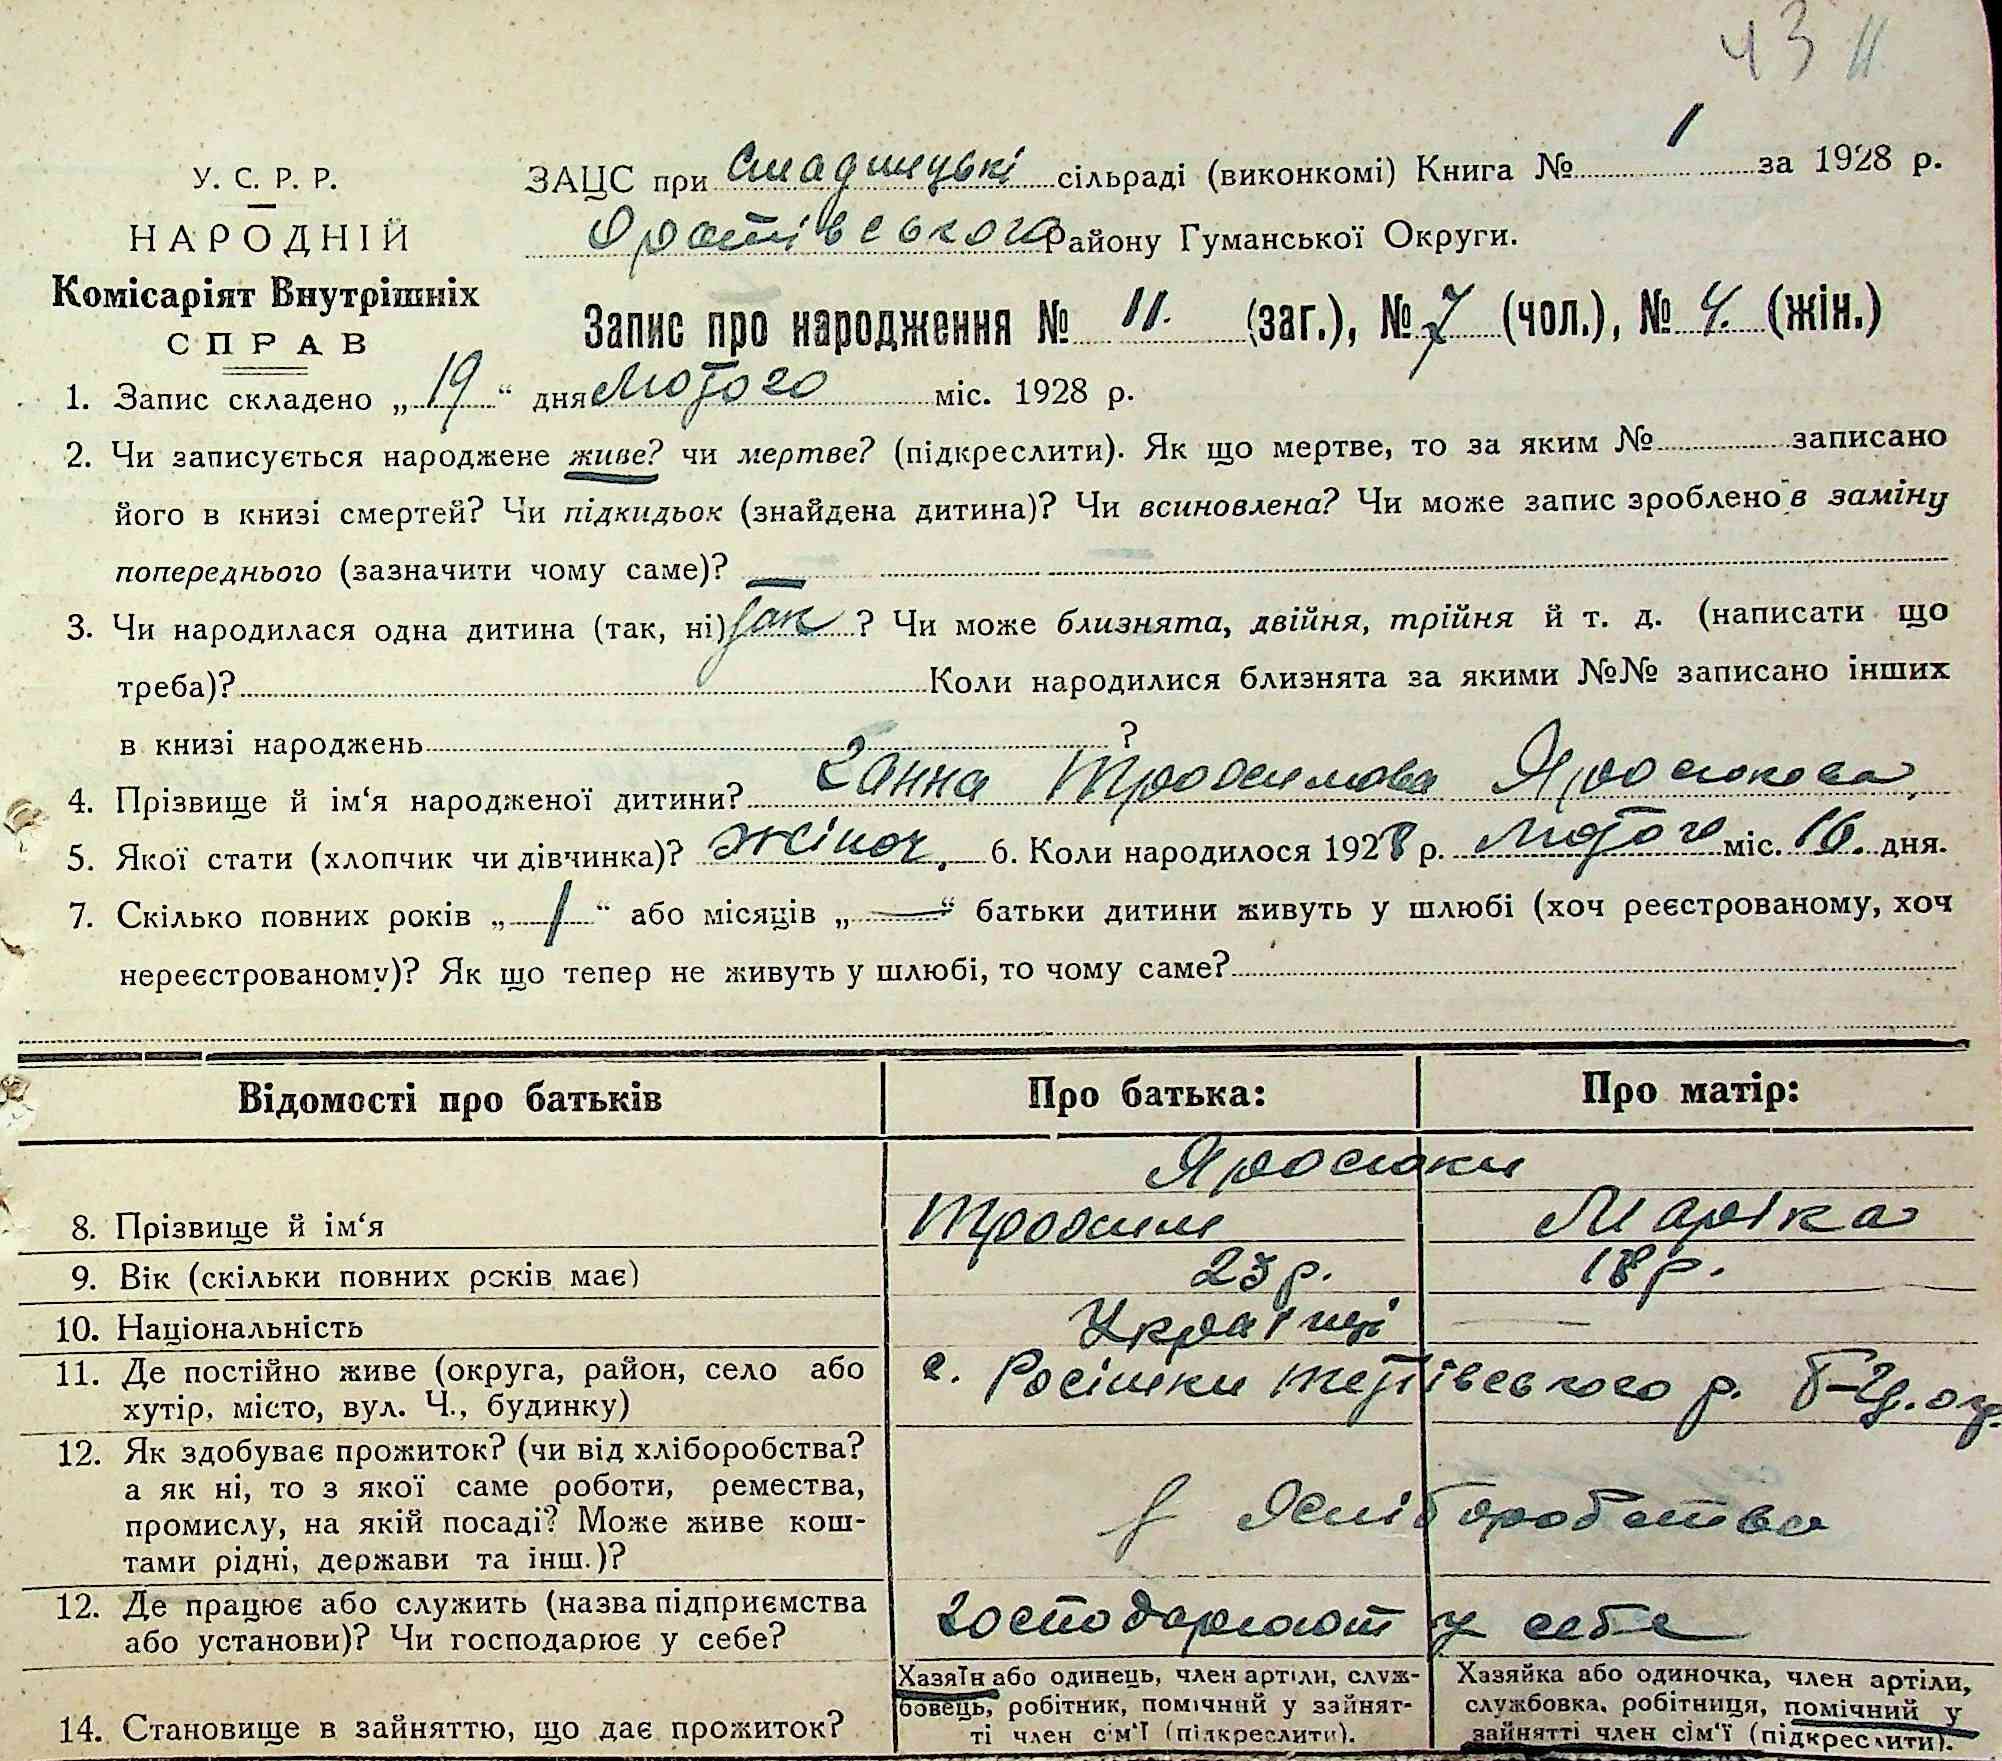 43 11
У. С. Р. Р.
НАРОДНІЙ
Комісаріят Внутрішніх
СПРАВ
ЗАЦС при Стадницькі сільраді (виконкомі) Книга № 1 за 1928 р.
Оратівського Району Гуманської Округи.
Запис про народження № 11. (заг.), № 7 (чол.), № 4. (жін.)
1. Запис складено „ 19 “ дня Лютого міс. 1928 р.
2. Чи записується народжене живе? чи мертве? (підкреслити). Як що мертве, то за яким № записано
його в книзі смертей? Чи підкидьок (знайдена дитина)? Чи всиновлена? Чи може запис зроблено в заміну
попереднього (зазначити чому саме)? —
3. Чи народилася одна дитина (так, ні) так ? Чи може близнята, двійня, трійня й т. д. (написати що
треба)? Коли народилися близнята за якими №№ записано інших
в книзі народжень ?
4. Прізвище й ім‘я народженої дитини? Ганна Трохимова Яросюкова
5. Якої стати (хлопчик чи дівчинка)? жіноч. 6. Коли народилося 1928 р. Лютого міс. 16. дня.
7. Скілько повних років „ 1 “ або місяців „ — “ батьки дитини живуть у шлюбі (хоч реєстрованому, хоч
нереєстрованому)? Як що тепер не живуть у шлюбі, то чому саме?
Відомості про батьків Про батька: Про матір:
Яросюки
8. Прізвище й ім‘я Трохим Маріка
9. Вік (скільки повних років має) 23 р. 18 р.
10. Національність Українці —
11. Де постійно живе (округа, район, село або
хутір, місто, вул. Ч., будинку)
с. Росішки Тетіївського р. Б-Ц. ок.
12. Як здобуває прожиток? (чи від хліборобства?
а як ні, то з якої саме роботи, ремества,
промислу, на якій посаді? Може живе кош-
тами рідні, держави та інш.)?
З Хліборобства
12. Де працює або служить (назва підприємства
або установи)? Чи господарює у себе?
Господарюют у себе
14. Становище в зайняттю, що дає прожиток?
Хазяїн або одинець, член артіли, служ-
бовець, робітник, помічний у зайнят-
ті член сім‘ї (підкреслити).
Хазяйка або одиночка, член артіли,
службовка, робітниця, помічний у
зайнятті член сім‘ї (підкреслити).